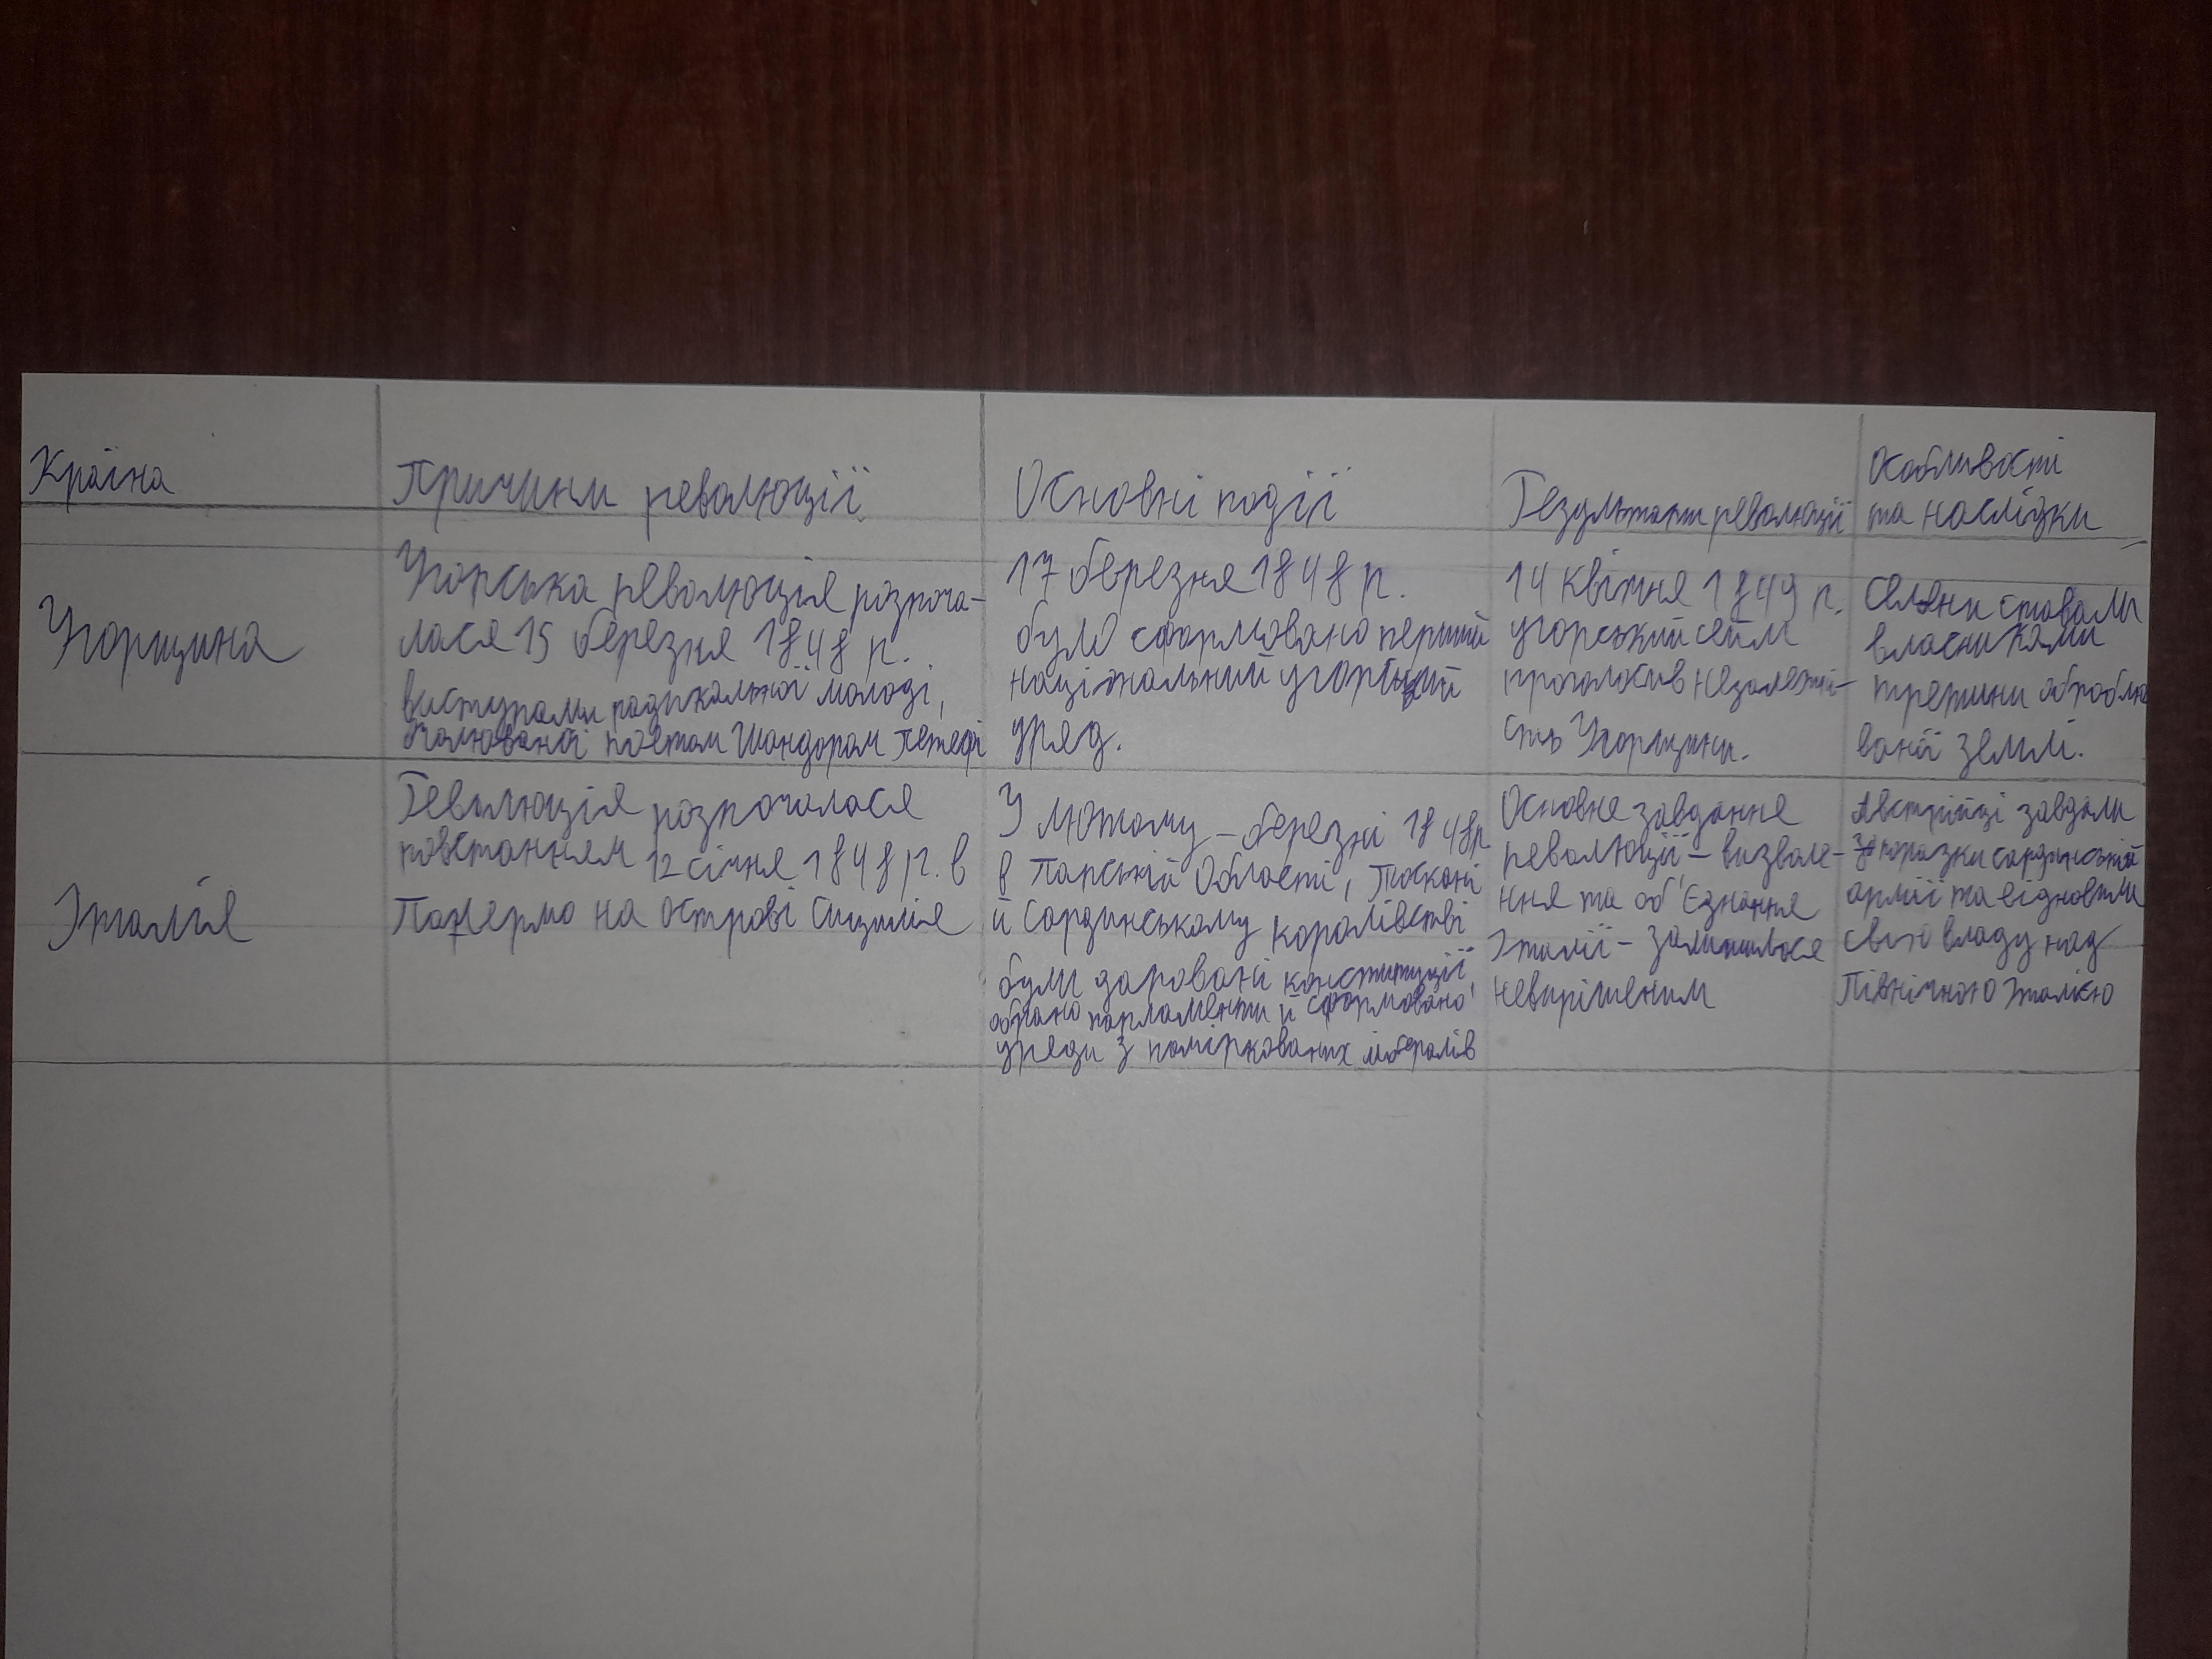 Країна
Причини революції
Основні події
Результати революції
Особливості
та наслідки
Угорщина
Угорська революція розпоча-
лася 15 березня 1848 р.
виступами радикальної молоді,
очолюваної поетом Шандором Петефі
17 березня 1848 р.
було сформовано перший
національний угорський
уряд.
14 квітня 1849 р.
угорський сейм
проголосив незалежні-
сть Угорщини.
Селяни ставали
власниками
третини оброблю
ваної землі.
Італія
Революція розпочалася
повстанням 12 січня 1848 р. в
Палермо на острові Сицилія
У лютому - березні 1848 р
в Папській Області, Тоскані
й Сардинському королівстві
були даровані конституції,
обрано парламенти й сформовано
уряди з поміркованих лібералів
Основне завдання
революції - визволе-
ння та об'єднання
Італії - залишилося
невирішеним
Австрійці завдали
поразки сардинській
армії та відновили
свою владу над
Північною Італією